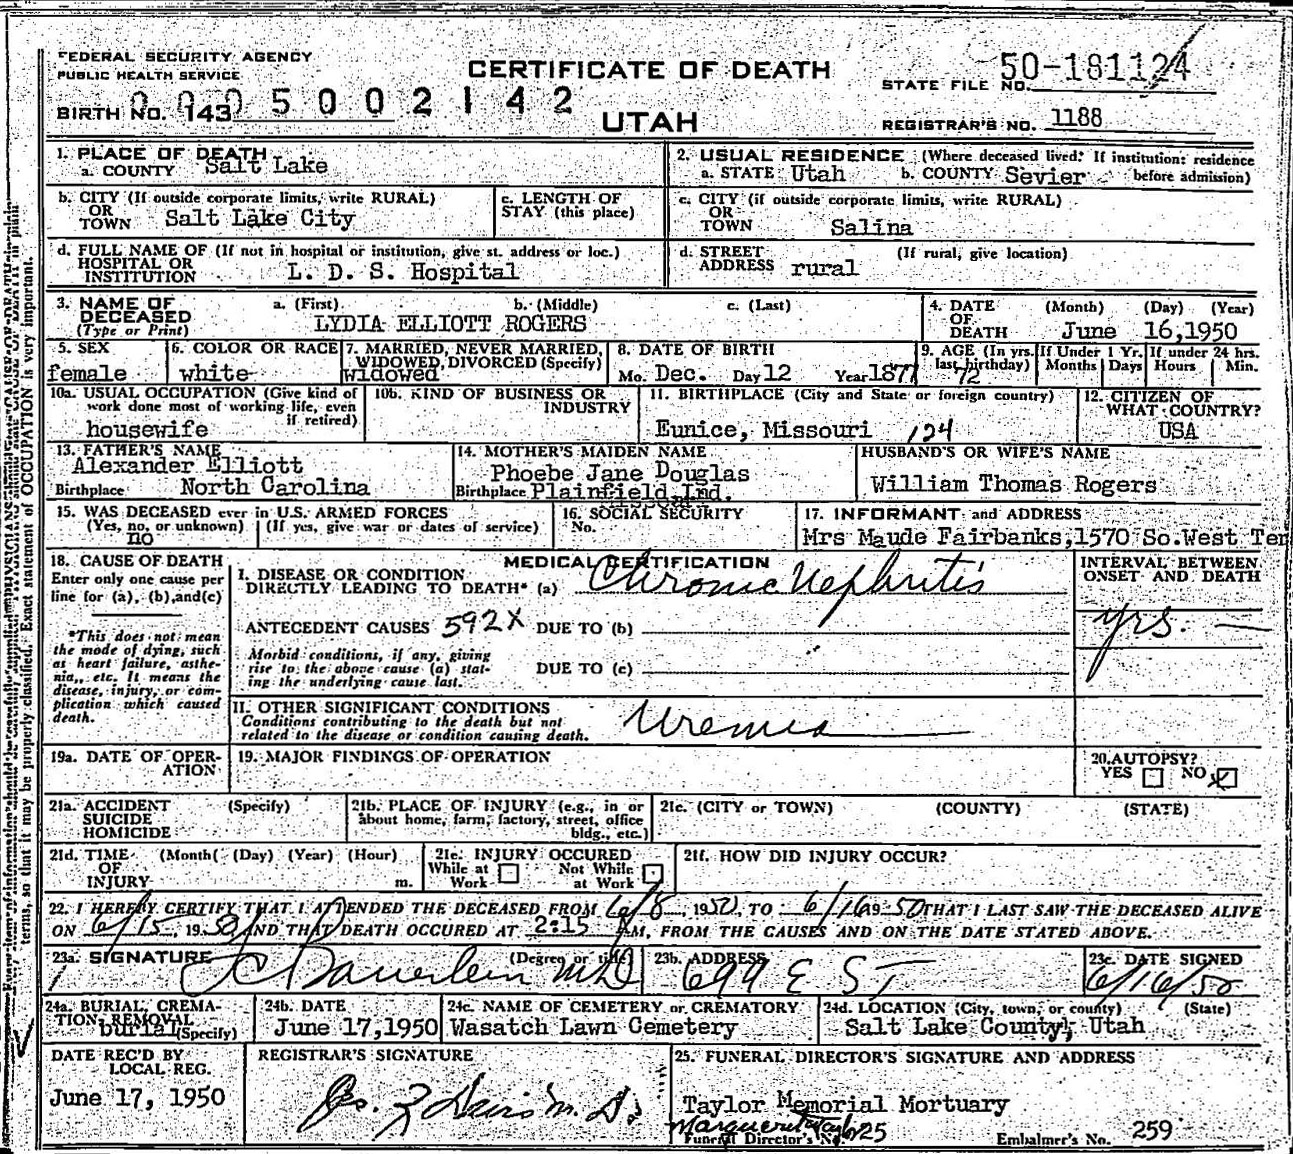 FEDERAL SECURITY AGENCY
PUBLIC HEALTH SERVICE
CERTIFICATE OF DEATH
UTAH
STATE FILE NO. 50-181124
BIRTH NO. 143 0005002142
REGISTRAR'S NO. 1188
1. PLACE OF DEATH
a. COUNTY Salt Lake
2. USUAL RESIDENCE (Where deceased lived. If institution: residence before admission)
a. STATE Utah b. COUNTY Sevier
b. CITY (If outside corporate limits, write RURAL)
OR
TOWN Salt Lake City
c. LENGTH OF
STAY (this place)
c. CITY (if outside corporate limits, write RURAL)
OR
TOWN Salina
d. FULL NAME OF (If not in hospital or institution, give st. address or loc.)
HOSPITAL OR
INSTITUTION L. D. S. Hospital
d. STREET (If rural, give location)
ADDRESS rural
3. NAME OF DECEASED
(Type or Print)
a. (First) b. (Middle) c. (Last)
LYDIA ELLIOTT ROGERS
4. DATE OF DEATH (Month) (Day) (Year)
June 16,1950
5. SEX
female
6. COLOR OR RACE
white
7. MARRIED, NEVER MARRIED,
WIDOWED, DIVORCED (Specify)
widowed
8. DATE OF BIRTH
Mo. Dec. Day 12 Year 1877
9. AGE (In yrs. last birthday)
72
If Under 1 Yr.
Months Days
If under 24 hrs.
Hours Min.
10a. USUAL OCCUPATION (Give kind of
work done most of working life, even
if retired)
housewife
10b. KIND OF BUSINESS OR
INDUSTRY
11. BIRTHPLACE (City and State or foreign country)
Eunice, Missouri 124
12. CITIZEN OF
WHAT COUNTRY?
USA
13. FATHER'S NAME
Alexander Elliott
Birthplace North Carolina
14. MOTHER'S MAIDEN NAME
Phoebe Jane Douglas
Birthplace Plainfield, Ind.
HUSBAND'S OR WIFE'S NAME
William Thomas Rogers
15. WAS DECEASED ever in U.S. ARMED FORCES
(Yes, no, or unknown) (If yes, give war or dates of service)
no
16. SOCIAL SECURITY
No.
17. INFORMANT and ADDRESS
Mrs Maude Fairbanks,1570 So.West Ten
18. CAUSE OF DEATH
Enter only one cause per
line for (a), (b), and (c)
*This does not mean
the mode of dying, such
as heart failure, asthe-
nia, etc. It means the
disease, injury, or com-
plication which caused
death.
MEDICAL CERTIFICATION
I. DISEASE OR CONDITION
DIRECTLY LEADING TO DEATH* (a) Chronic Nephritis
ANTECEDENT CAUSES 592X DUE TO (b)
Morbid conditions, if any, giving
rise to the above cause (a) stat-
ing the underlying cause last.
DUE TO (c)
INTERVAL BETWEEN
ONSET AND DEATH
yrs.
II. OTHER SIGNIFICANT CONDITIONS
Conditions contributing to the death but not
related to the disease or condition causing death.
Uremia
19a. DATE OF OPER-
ATION
19. MAJOR FINDINGS OF OPERATION
20. AUTOPSY?
YES NO
21a. ACCIDENT (Specify)
SUICIDE
HOMICIDE
21b. PLACE OF INJURY (e.g., in or
about home, farm, factory, street, office
bldg., etc.)
21c. (CITY or TOWN) (COUNTY) (STATE)
21d. TIME (Month) (Day) (Year) (Hour)
OF
INJURY m.
21e. INJURY OCCURED
While at Work Not While at Work
21f. HOW DID INJURY OCCUR?
22. I HEREBY CERTIFY THAT I ATTENDED THE DECEASED FROM 6/8, 1950, TO 6/16 1950 THAT I LAST SAW THE DECEASED ALIVE
ON 6/15 1950 AND THAT DEATH OCCURED AT 2:15 M, FROM THE CAUSES AND ON THE DATE STATED ABOVE.
23a. SIGNATURE (Degree or title)
MD
23b. ADDRESS
699 E ST
23c. DATE SIGNED
6/16/50
24a. BURIAL, CREMA-
TION, REMOVAL
burial (Specify)
24b. DATE
June 17,1950
24c. NAME OF CEMETERY or CREMATORY
Wasatch Lawn Cemetery
24d. LOCATION (City, town, or county) (State)
Salt Lake County, Utah
DATE REC'D BY
LOCAL REG.
June 17, 1950
REGISTRAR'S SIGNATURE
25. FUNERAL DIRECTOR'S SIGNATURE AND ADDRESS
Taylor Memorial Mortuary
Funeral Director's No. 25
Embalmer's No. 259